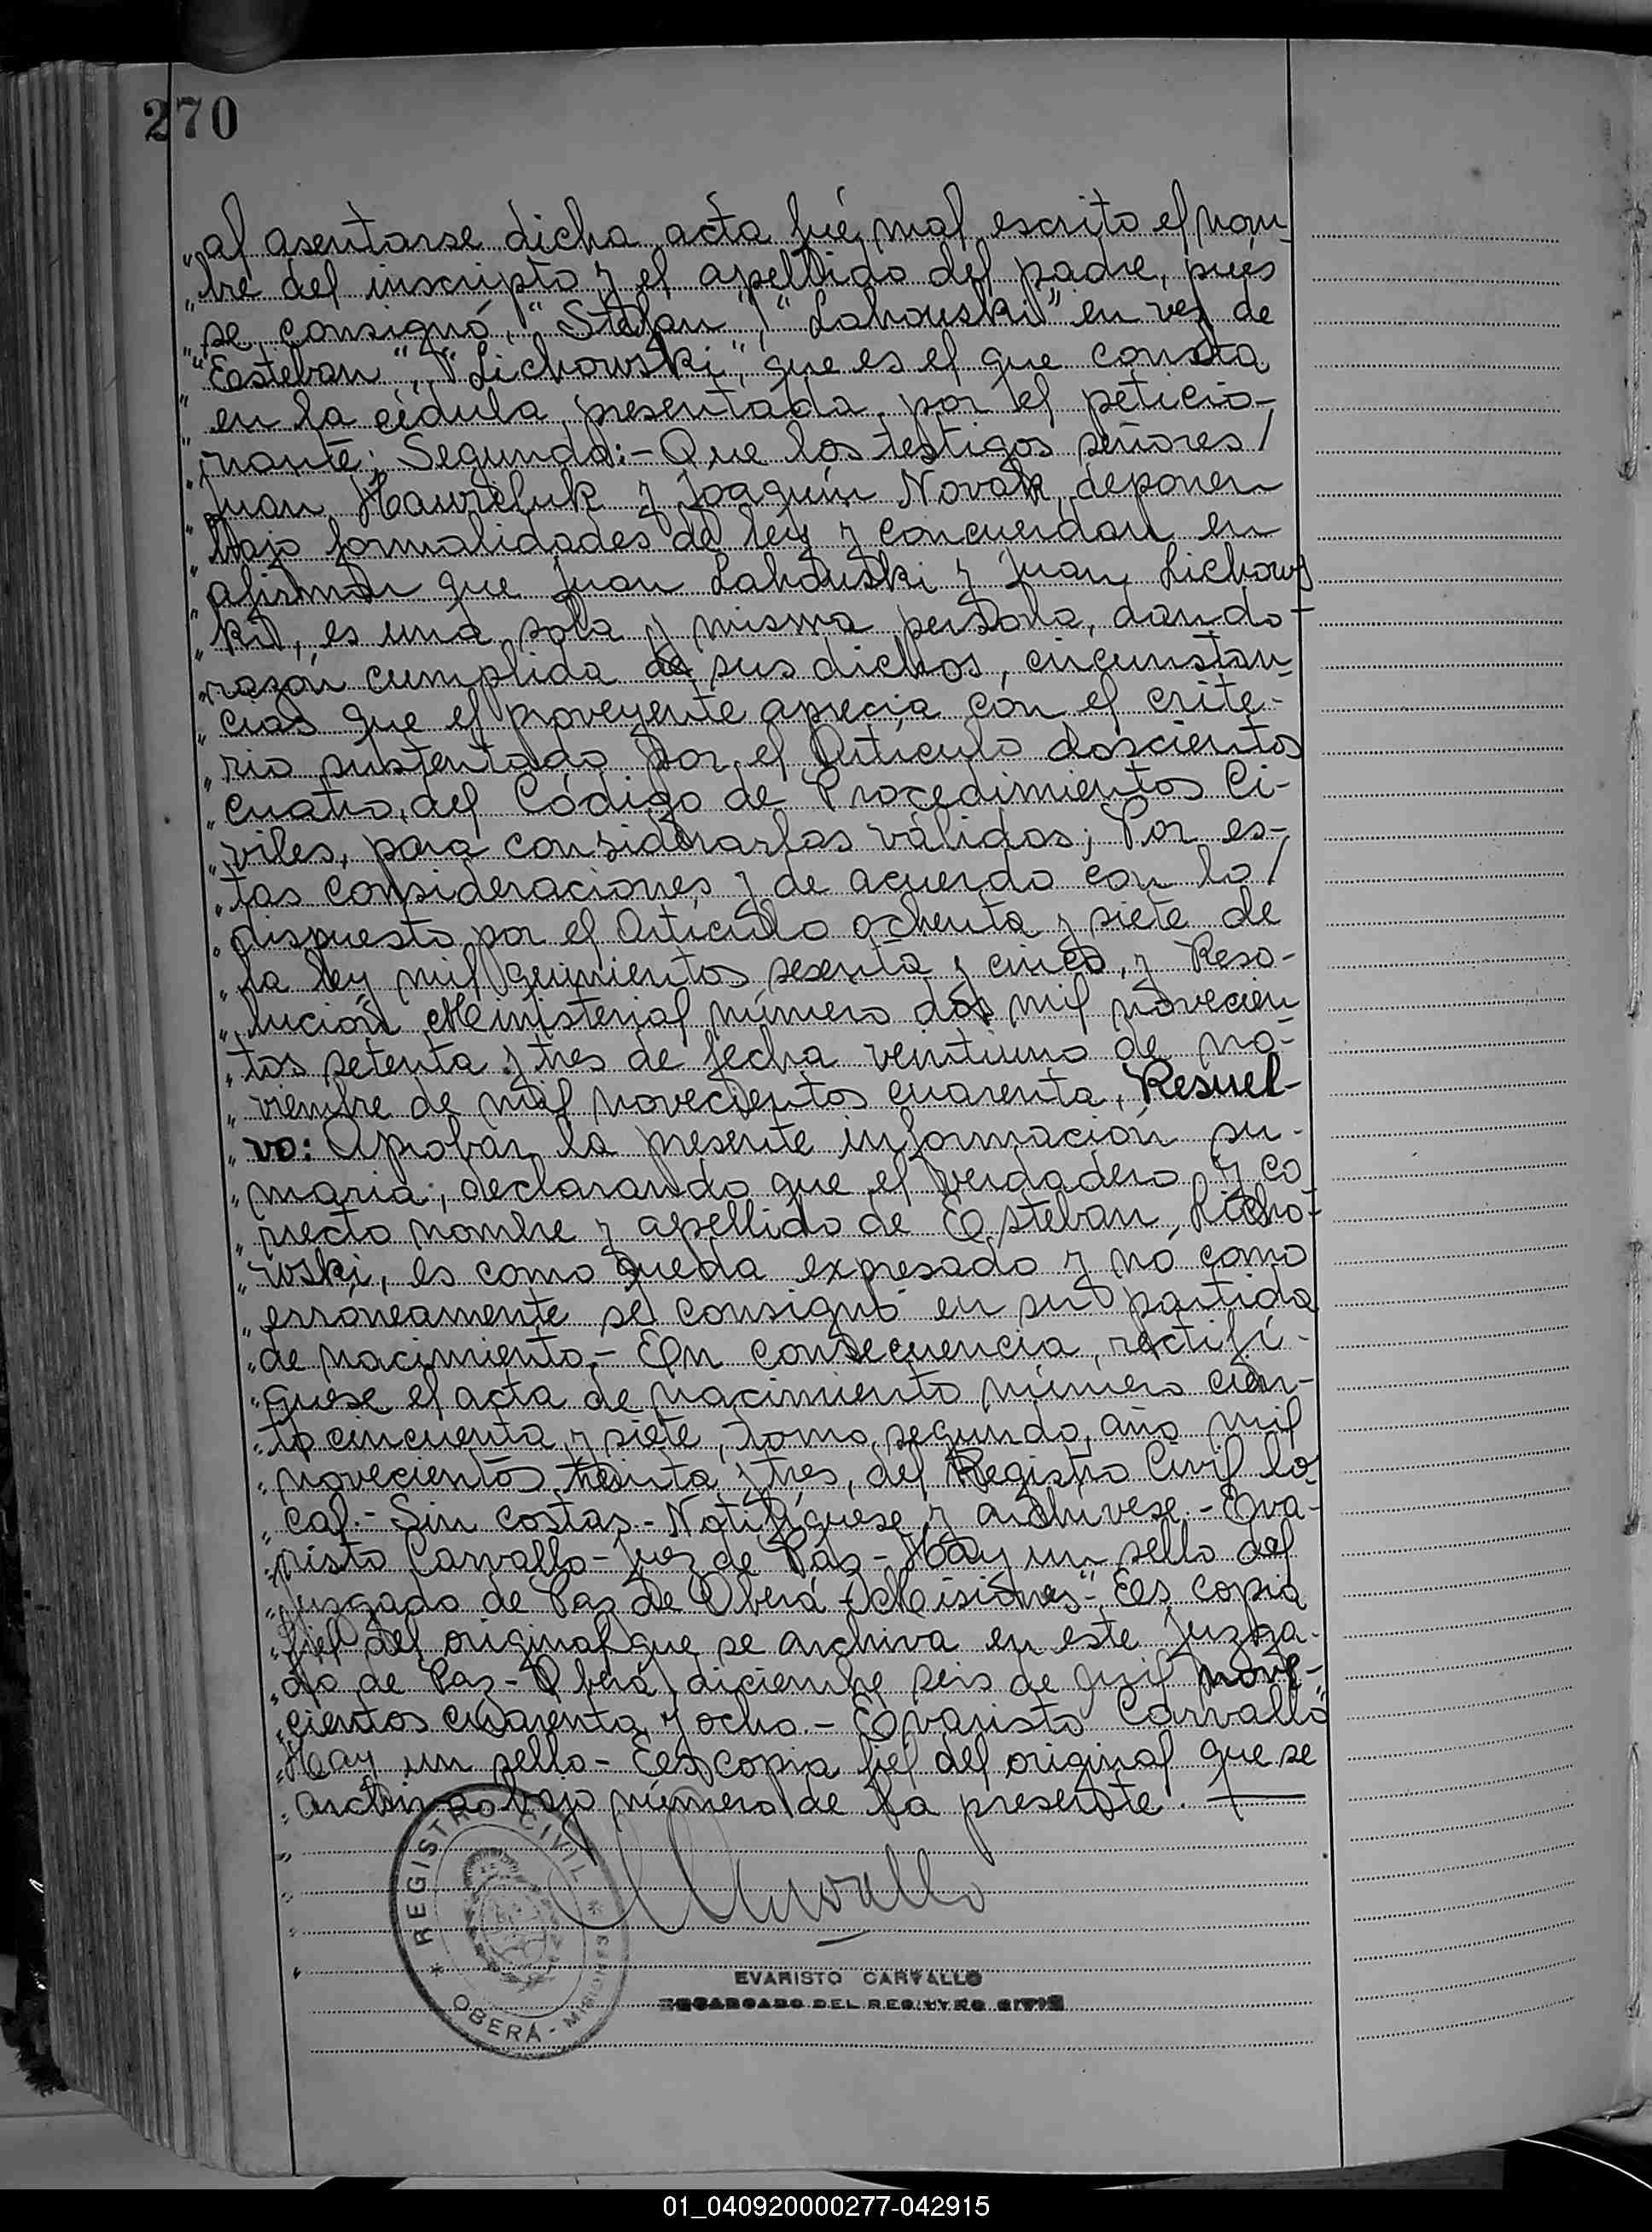 270
„ al asentarse dicha acta fué mal escrito el nom-
„ bre del inscripto y el apellido del padre, pues
„ se consignó, "Stefan", "Lahouski" en vez de
„ "Esteban", y "Lichowski", que es el que consta
„ en la cédula presentada por el peticio-
„ nante; Segundo:- Que los testigos señores/
„ Juan Hawreluk y Joaquín Novak, deponen
„ bajo formalidades de ley y concuerdan en
„ afirmar que Juan Lahouski y Juan Lichows
„ ki, es una sola y misma persona, dando-
„ razón cumplida de sus dichos, circunstan-
„ cias que el proveyente aprecia con el crite-
„ rio sustentado por el Artículo doscientos
„ cuatro, del Código de Procedimientos Ci-
„ viles, para considerarlos válidos; Por es-
„ tas consideraciones y de acuerdo con lo/
„ dispuesto por el Artículo ochenta y siete de
„ la ley mil quinientos sesenta y cinco, y Reso-
„ lución Ministerial número dos mil novecien
„ tos setenta y tres de fecha veintiuno de no-
„ viembre de mil novecientos cuarenta, Resuel-
„ vo: Aprobar la presente información su-
„ maria; declarando que el verdadero y co
„ rrecto nombre y apellido de Esteban Licho-
„ wski, es como queda expresado y nó como
„ erróneamente se consignó en su partida
„ de nacimiento.- En consecuencia, rectifí-
„ quese el acta de nacimiento número cien-
„ to cincuenta y siete, tomo segundo, año mil
„ novecientos treinta y tres, del Registro Civil lo
„ cal.- Sin costas.- Notifíquese y archívese.- Eva-
„ risto Carvallo - Juez de Paz - Hay un sello del
„ Juzgado de Paz de Oberá - Misiones".- Es copia
„ fiel del original que se archiva en este Juzga-
„ do de Paz - Oberá, diciembre seis de mil nove-
„ cientos cuarenta y ocho.- Evaristo Carvallo
„ Hay un sello - Es copia fiel del original que se
„ archiva bajo número de la presente.
Carvallo
REGISTRO CIVIL
* OBERÁ - MISIONES *
EVARISTO CARVALLO
ENCARGADO DEL REGISTRO CIVIL
01_040920000277-042915